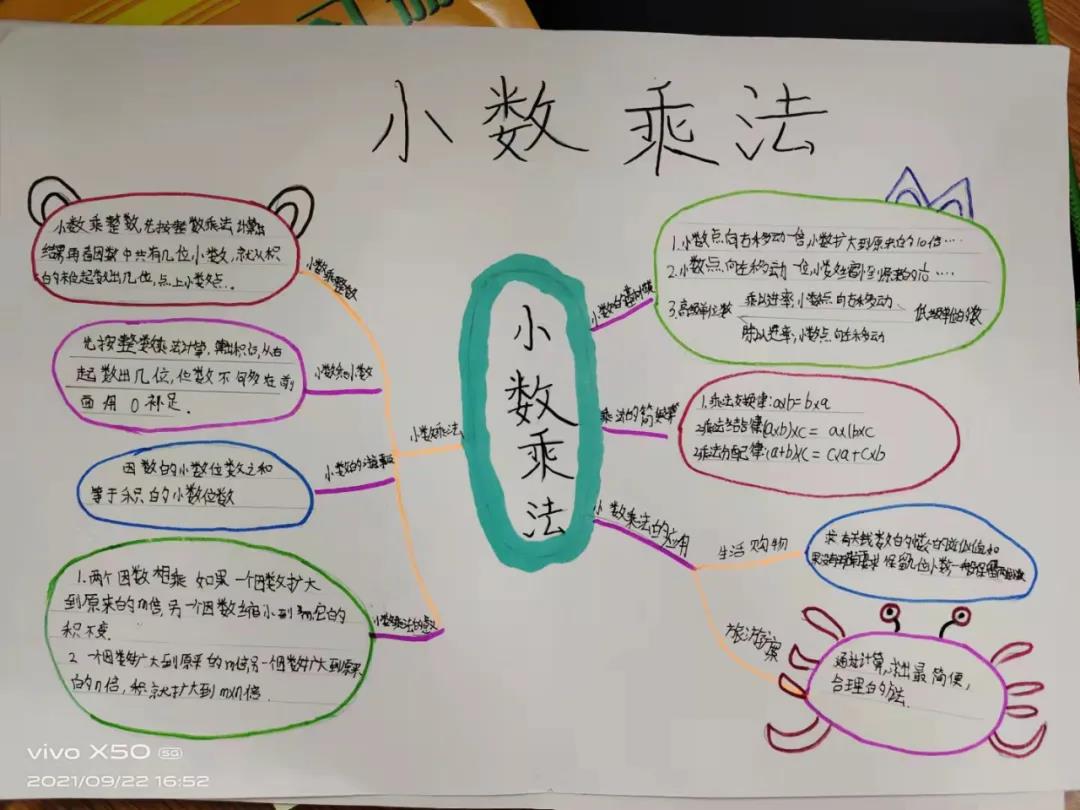 小数乘法
小数乘整数,先按整数乘法计算出
结果再看因数中共有几位小数,就从积
的末位起数出几位,点上小数点.
小数乘整数
先按整数乘法计算,算出积后,从右
起数出几位,位数不够多在前
面用0补足.
小数乘小数
因数的小数位数之和
等于积的小数位数
小数的
1.两个因数相乘 如果一个因数扩大
到原来的m倍,另一个因数缩小到 它的
积不变.
2 一个因数扩大到原来的m倍,另一个因数扩大到原来
的n倍,积就扩大到mxn倍.
小数乘法的
小数乘法
小数乘法
小数的
1.小数点向右移动一位,小数扩大到原来的10倍····
2.小数点向左移动一位,小数缩小到原来的 ····
3.高级单位数 乘以进率,小数点向右移动 低级单位的数
除以进率,小数点向左移动
乘法的简便
1.乘法交换律:axb=bxa
2乘法结合律(axb)xc= ax(bxc
2乘法分配律:(a+b)xc=cxa+cxb
小数乘法的应用
生活购物
求有关钱数的 的近似值 如
果没有 要求保留几位小数一般保留两位
旅游方案
通过计算,求出最简便,
合理的方法.
vivo X50 5G
2021/09/22 16:52